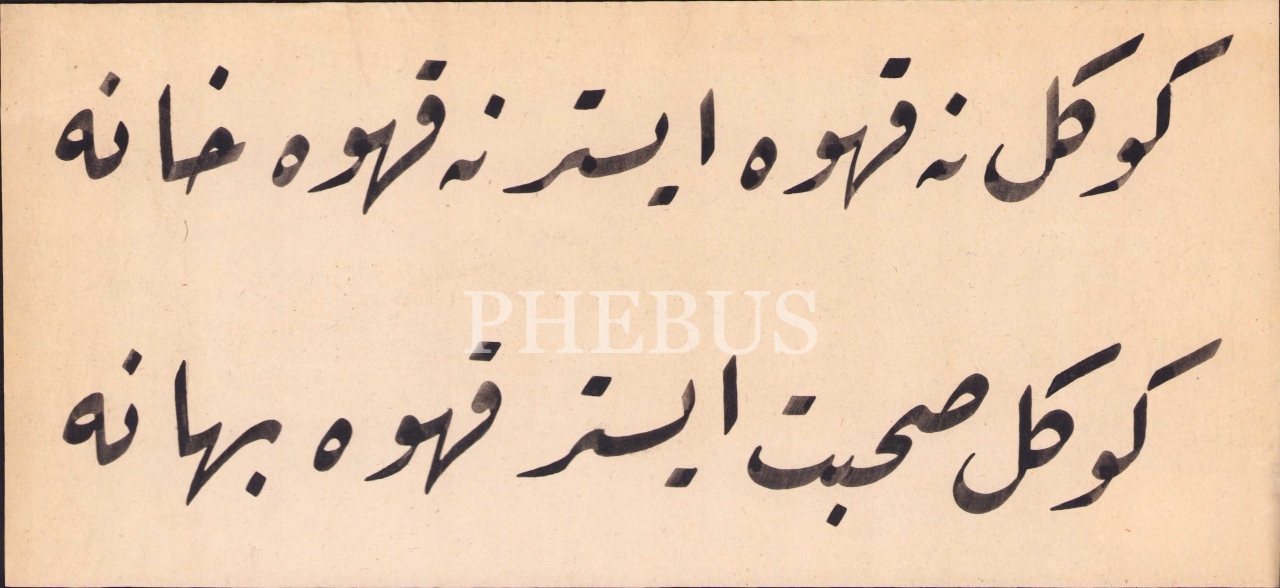 كوكل نه قهوه ايستر نه قهوه خانه
PHEBUS
كوكل صحبت ايستر قهوه بهانه